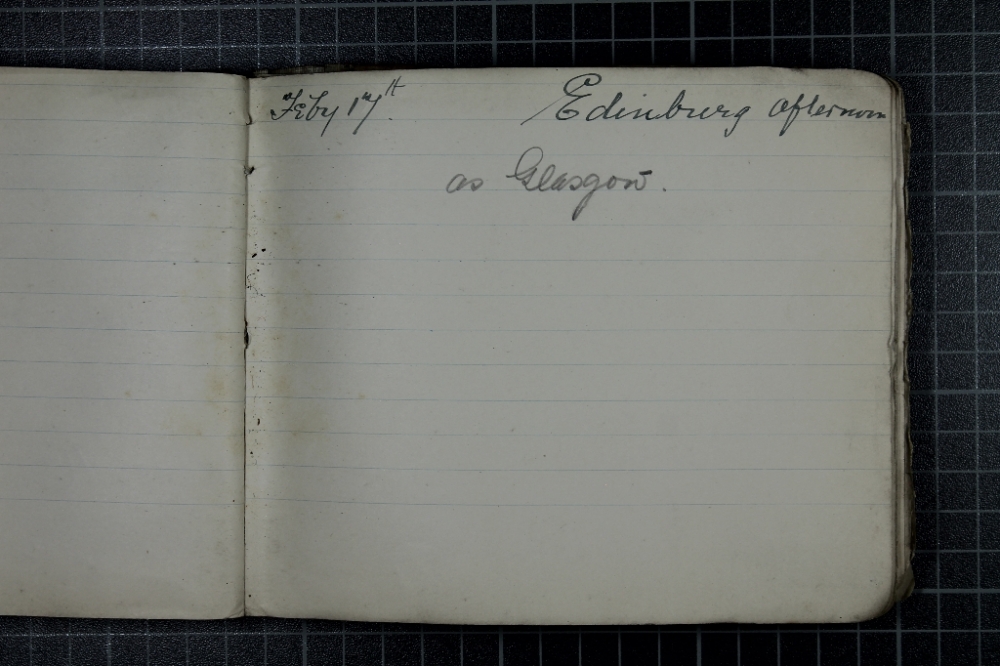 Feby 17th. Edinburg Afternoon
as Glasgow.